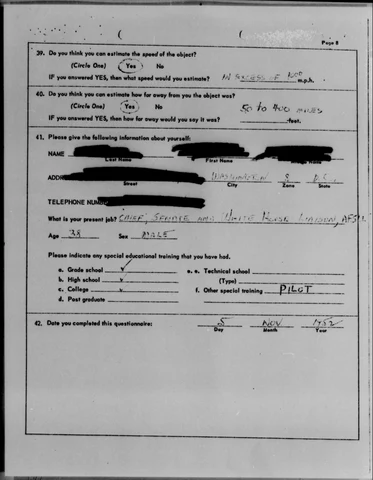 Page 8
39. Do you think you can estimate the speed of the object?
(Circle One) Yes No
IF you answered YES, then what speed would you estimate? IN EXCESS OF m.p.h.
40. Do you think you can estimate how far away from you the object was?
(Circle One) Yes No
IF you answered YES, then how far away would you say it was? 50 to 400 MILES feet.
41. Please give the following information about yourself:
NAME
Last Name First Name Name
ADDR WASHINGTON 8 D.C.
Street City Zone State
TELEPHONE NUMB
What is your present job? CHIEF, SENATE AND WHITE HOUSE LIAISON,
Age 38 Sex MALE
Please indicate any special educational training that you have had.
a. Grade school ✓ e. e. Technical school
b. High school ✓ (Type)
c. College ✓ f. Other special training PILOT
d. Post graduate
42. Date you completed this questionnaire: 5 NOV 1952
Day Month Year